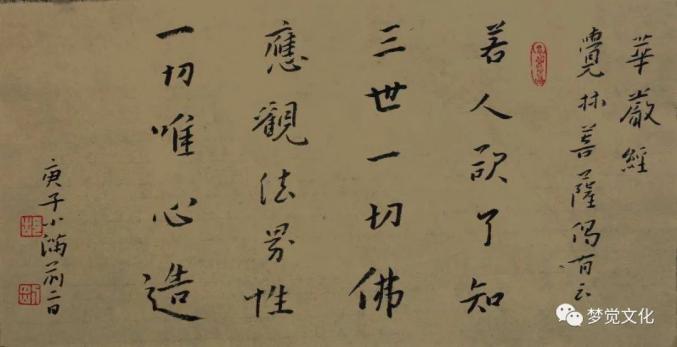 華嚴經
覺林菩薩偈有云
若人欲了知
三世一切佛
應觀法界性
一切唯心造
庚子小滿前二日
梦觉文化